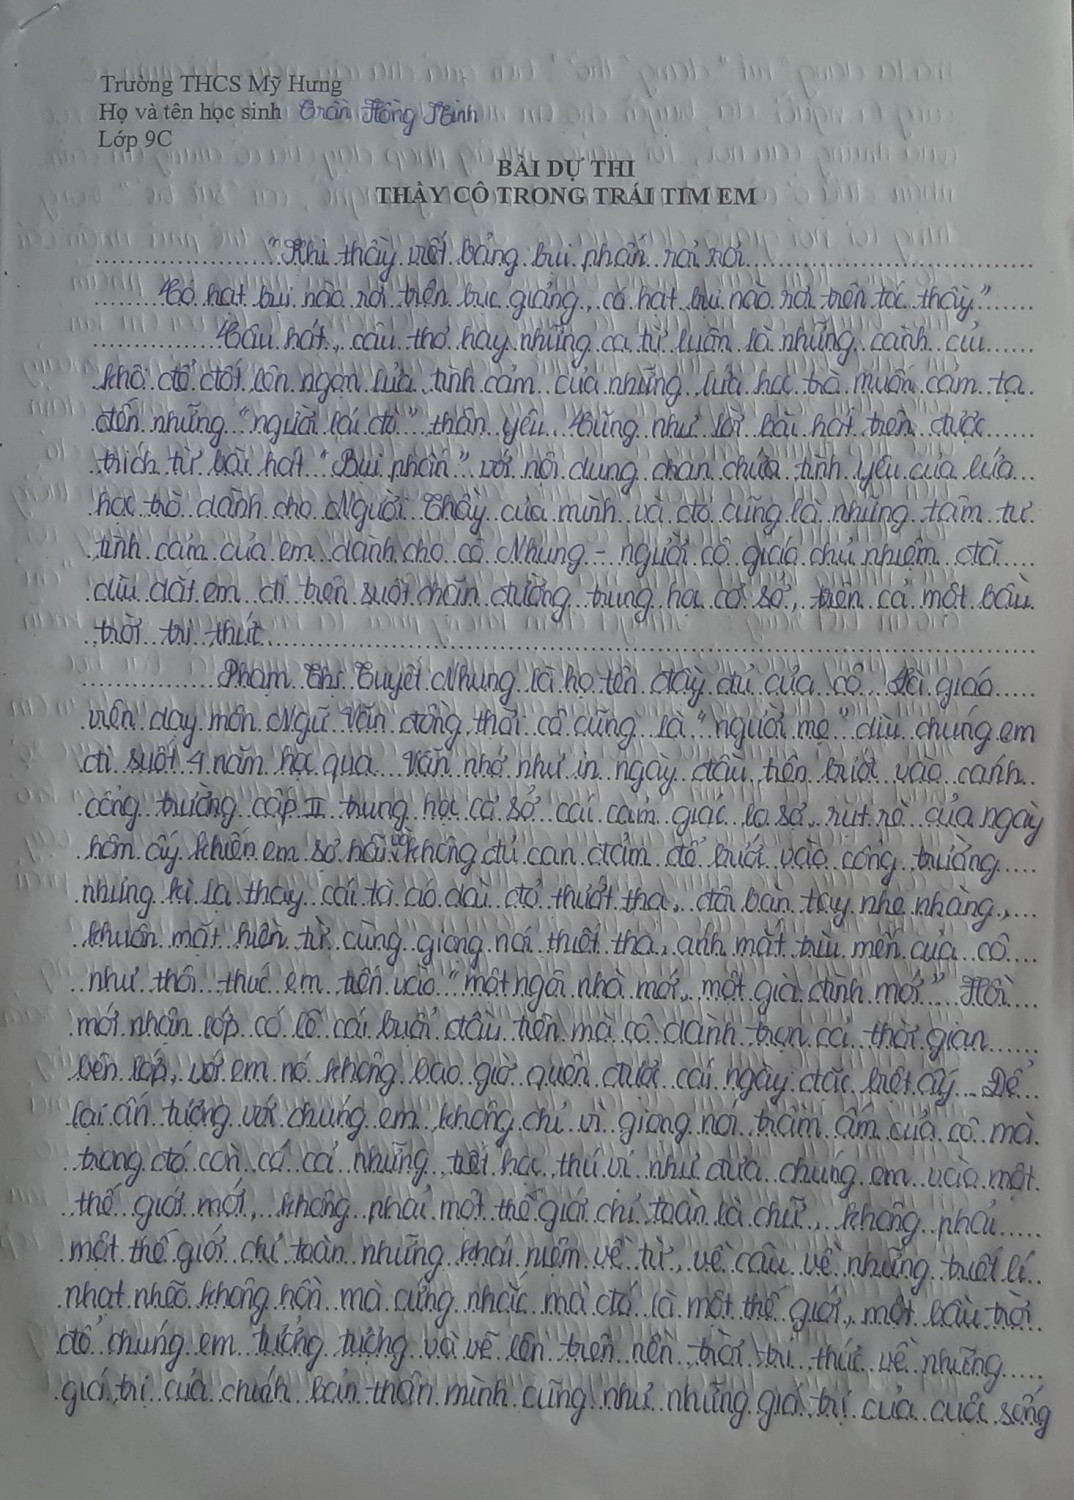 Trường THCS Mỹ Hưng
Họ và tên học sinh Trần Hồng Minh
Lớp 9C
BÀI DỰ THI
THẦY CÔ TRONG TRÁI TIM EM
"Khi thầy viết bảng bụi phấn rơi rơi
Có hạt bụi nào rơi trên bục giảng, có hạt bụi nào rơi trên tóc thầy"
Câu hát, câu thơ hay những ca từ luôn là những cành củi
khô để đốt lên ngọn lửa tình cảm của những lứa học trò muốn cảm tạ
đến những "người lái đò" thân yêu. Cũng như lời bài hát trên được
trích từ bài hát "Bụi phấn" với nội dung chan chứa tình yêu của lứa
học trò dành cho Người Thầy của mình và đó cũng là những tâm tư
tình cảm của em dành cho cô Nhung - người cô giáo chủ nhiệm đã
dìu dắt em đi trên suốt chặn đường trung học cơ sở, trên cả một bầu
trời tri thức
Phạm Thị Tuyết Nhung là họ tên đầy đủ của cô. Là giáo
viên dạy môn Ngữ Văn đồng thời cô cũng là "người mẹ" dìu chúng em
đi suốt 4 năm học qua. Vẫn nhớ như in ngày đầu tiên bước vào cánh
cổng trường cấp II trung học cơ sở cái cảm giác lo sợ, rụt rè của ngày
hôm ấy khiến em sợ hãi và không đủ can đảm để bước vào cổng trường
nhưng kì lạ thay cái tà áo dài đỏ thướt tha, đôi bàn tay nhẹ nhàng,
khuôn mặt hiền từ cùng giọng nói thiết tha, ánh mắt trìu mến của cô
như thôi thúc em tiến vào "một ngôi nhà mới, một gia đình mới" Hồi
mới nhận lớp có lẽ cái buổi đầu tiên mà cô dành trọn cả thời gian
bên lớp, với em nó không bao giờ quên được cái ngày đặc biệt ấy. Để
lại ấn tượng với chúng em không chỉ vì giọng nói trầm ấm của cô mà
trong đó còn có cả những tiết học thú vị như đưa chúng em vào một
thế giới mới, không phải một thế giới chỉ toàn là chữ, không phải
một thế giới chỉ toàn những khái niệm về từ, về câu về những triết lí
nhạt nhẽo không hồn mà cứng nhắc mà đó là một thế giới, một bầu trời
để chúng em tưởng tượng và vẽ lên trên nền trời tri thức về những
giá trị của chính bản thân mình cũng như những giá trị của cuộc sống